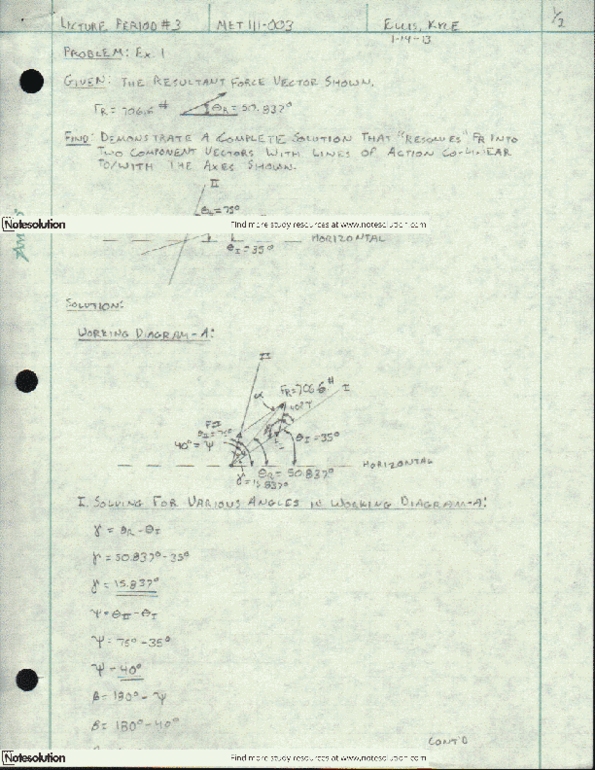 LECTURE PERIOD #3 MET 111-003 ELLIS, KYLE 1/2
1-14-13
PROBLEM: EX. 1
GIVEN: THE RESULTANT FORCE VECTOR SHOWN.
FR = 706.6# θR = 50.837°
FIND: DEMONSTRATE A COMPLETE SOLUTION THAT "RESOLVES" FR INTO
TWO COMPONENT VECTORS WITH LINES OF ACTION CO-LINEAR
TO/WITH THE AXES SHOWN.
II
θII = 75°
Notesolution Find more study resources at www.notesolution.com
HORIZONTAL
θI = 35°
SOLUTION:
WORKING DIAGRAM-A:
II
FR = 706.6# I
α
FII
θII = 75°
40° = Ψ θI = 35°
HORIZONTAL
θR = 50.837°
γ = 15.837°
I. SOLVING FOR VARIOUS ANGLES IN WORKING DIAGRAM-A:
γ = θR - θI
γ = 50.837° - 35°
γ = 15.837°
Ψ = θII - θI
Ψ = 75° - 35°
Ψ = 40°
β = 180° - Ψ
β = 180° - 40°
CONT'D
Notesolution Find more study resources at www.notesolution.com